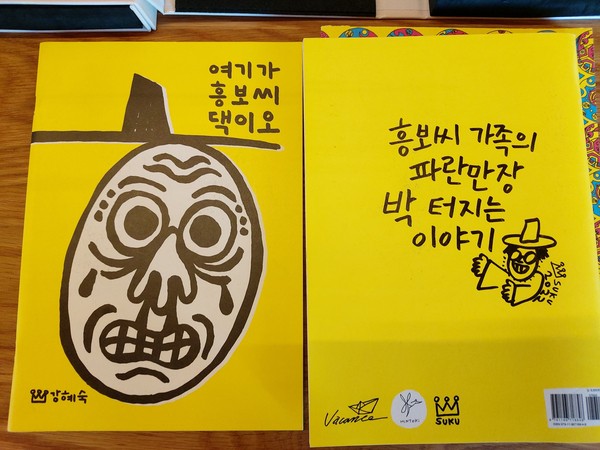 여기가
흥보씨
댁이오
강혜숙
흥보씨 가족의
파란만장
박 터지는
이야기
SUKU
2022
Vacance
SUKU